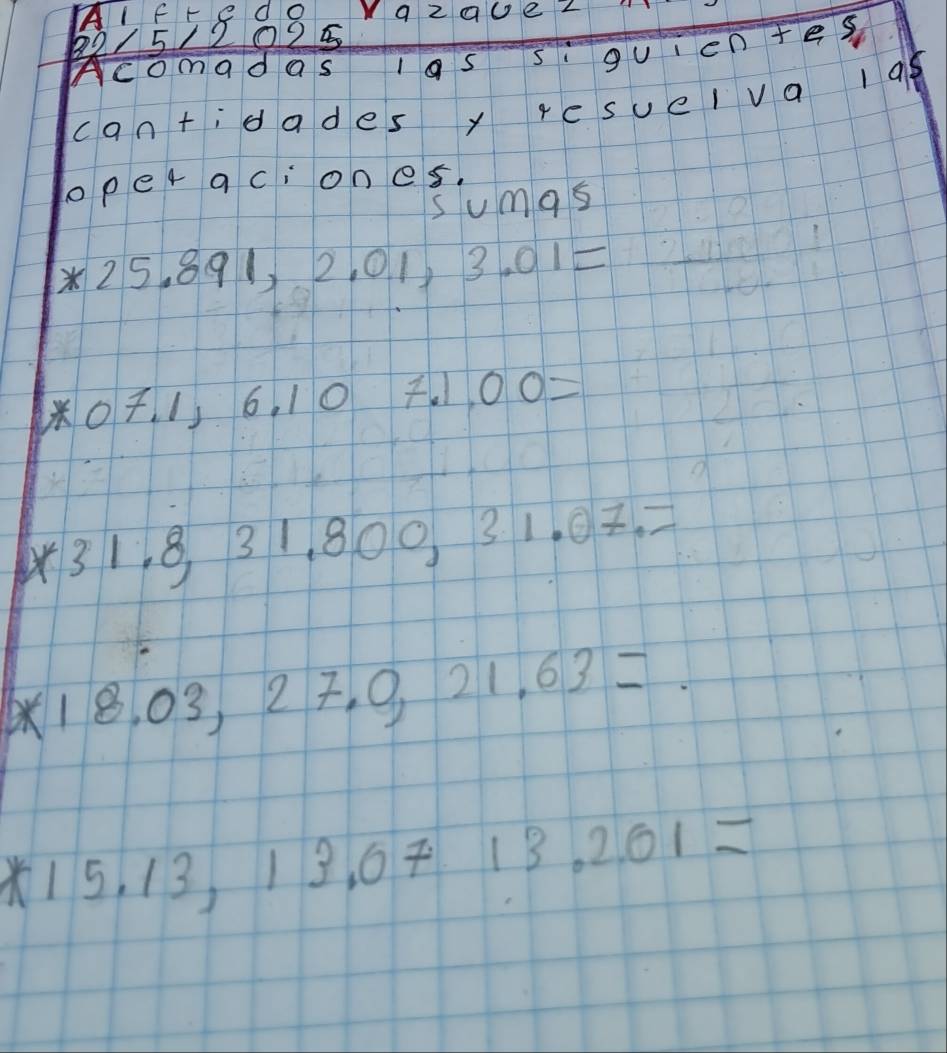 Alfredo Vazquez
22/5/2025
Acomadas las siguientes
cantidades y resuelva las
operaciones.
sumas
*25.891, 2.01, 3.01=
*07.1, 6.10 7.100=
*31.8, 31.800, 31.07.=
*18.03, 27.0, 21.63=.
*15.13, 13.07 13.201=